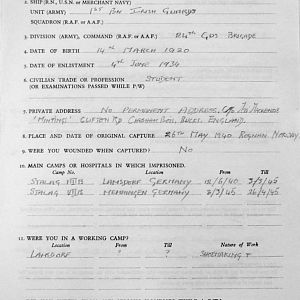 2. SHIP (R.N., U.S.N. or MERCHANT NAVY)
UNIT (ARMY) 1ST BN IRISH GUARDS
SQUADRON (R.A.F. or A.A.F.)
3. DIVISION (ARMY), COMMAND (R.A.F. or A.A.F.) 24th GDS BRIGADE
4. DATE OF BIRTH 14TH MARCH 1920
5. DATE OF ENLISTMENT 4th JUNE 1934
6. CIVILIAN TRADE OR PROFESSION STUDENT
(OR EXAMINATIONS PASSED WHILE P/W)
7. PRIVATE ADDRESS NO PERMANENT ADDRESS, C/o
CLIFTON RD CHESHAM BOIS, BUCKS. ENGLAND.
8. PLACE AND DATE OF ORIGINAL CAPTURE 26th MAY 1940 NORWAY
9. WERE YOU WOUNDED WHEN CAPTURED? NO
10. MAIN CAMPS OR HOSPITALS IN WHICH IMPRISONED.
Camp No. Location From Till
STALAG VIIIB LAMSDORF GERMANY /6/40 3/3/45
STALAG MEMMINGEN GERMANY 3/3/45 26/4/45
11. WERE YOU IN A WORKING CAMP?
Location From Till Nature of Work
LAMSDORF ? ? SHOEMAKING +